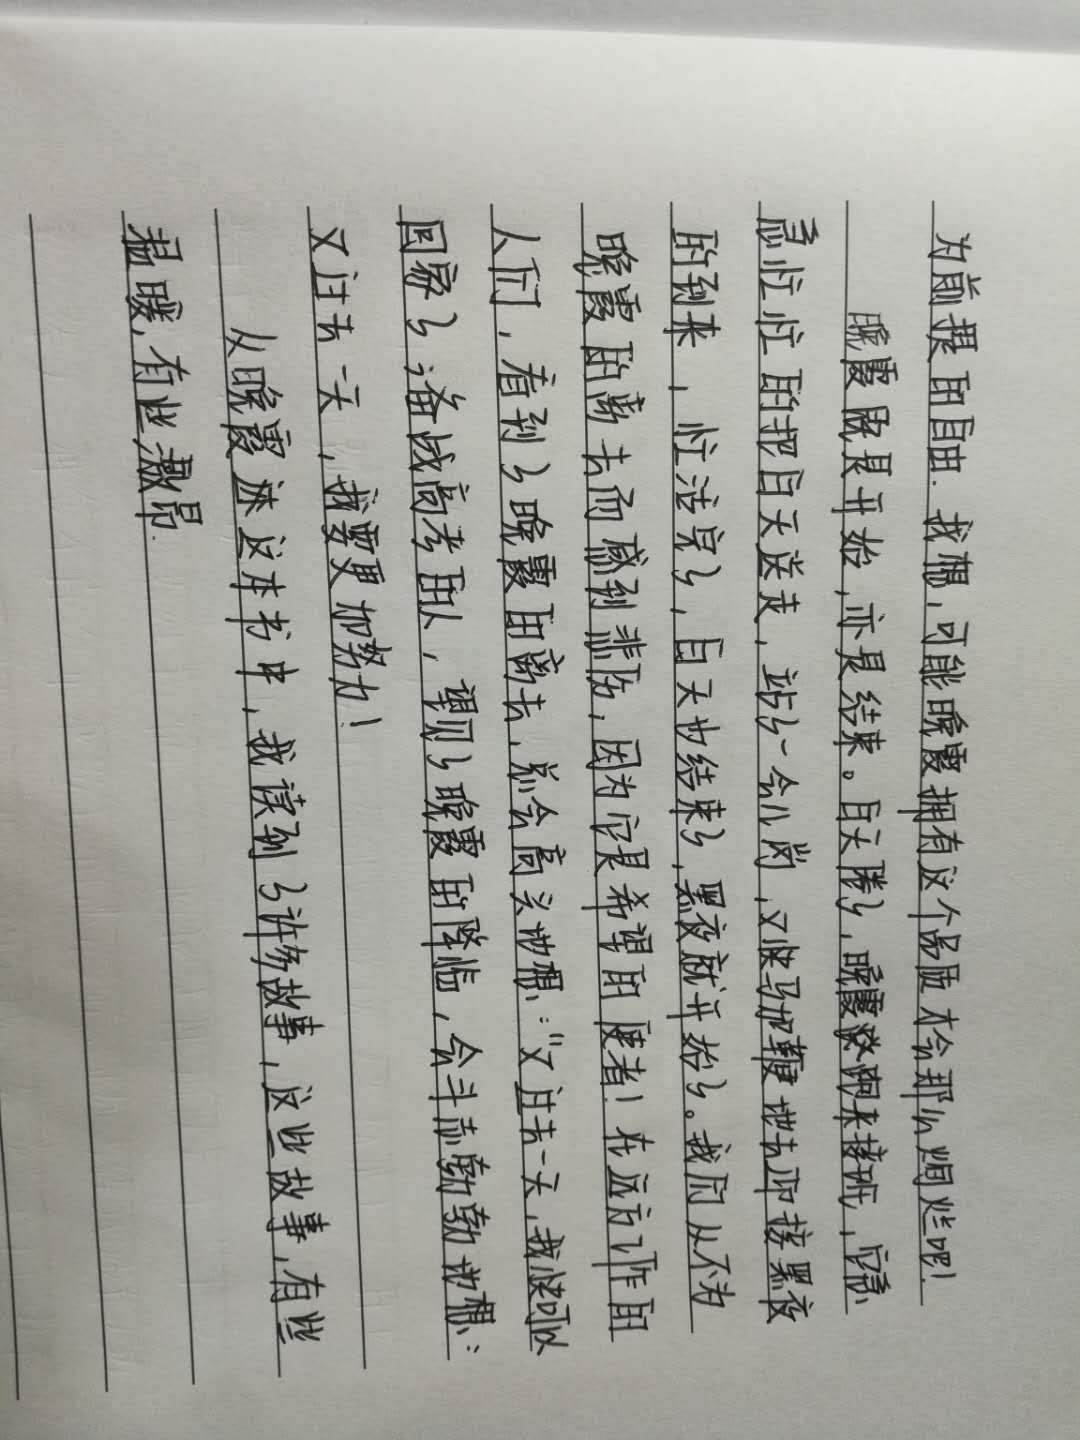 为前提的自由. 我想,可能晚霞拥有这个品质才会那么焖烂吧!
晚霞既是开始,亦是结束。白天倦了,晚霞啊来接班,它急
急忙忙的把白天送走,站了一会儿岗,又快马加鞭地去迎接黑夜
的到来,忙活完了,白天也结束了,黑夜就开始了。我们从不为
晚霞的离去而感到悲伤,因为它是希望的使者!在远方工作的
人们,看到了晚霞的离去,总会高兴地想:“又过去一天,我快可以
回家了;备战高考的人,望见了晚霞的降临,会斗志勃勃地想:
又过去一天,我要更加努力!
从晚霞这本书中,我读到了许多故事,这些故事,有些
温暖,有些激昂.